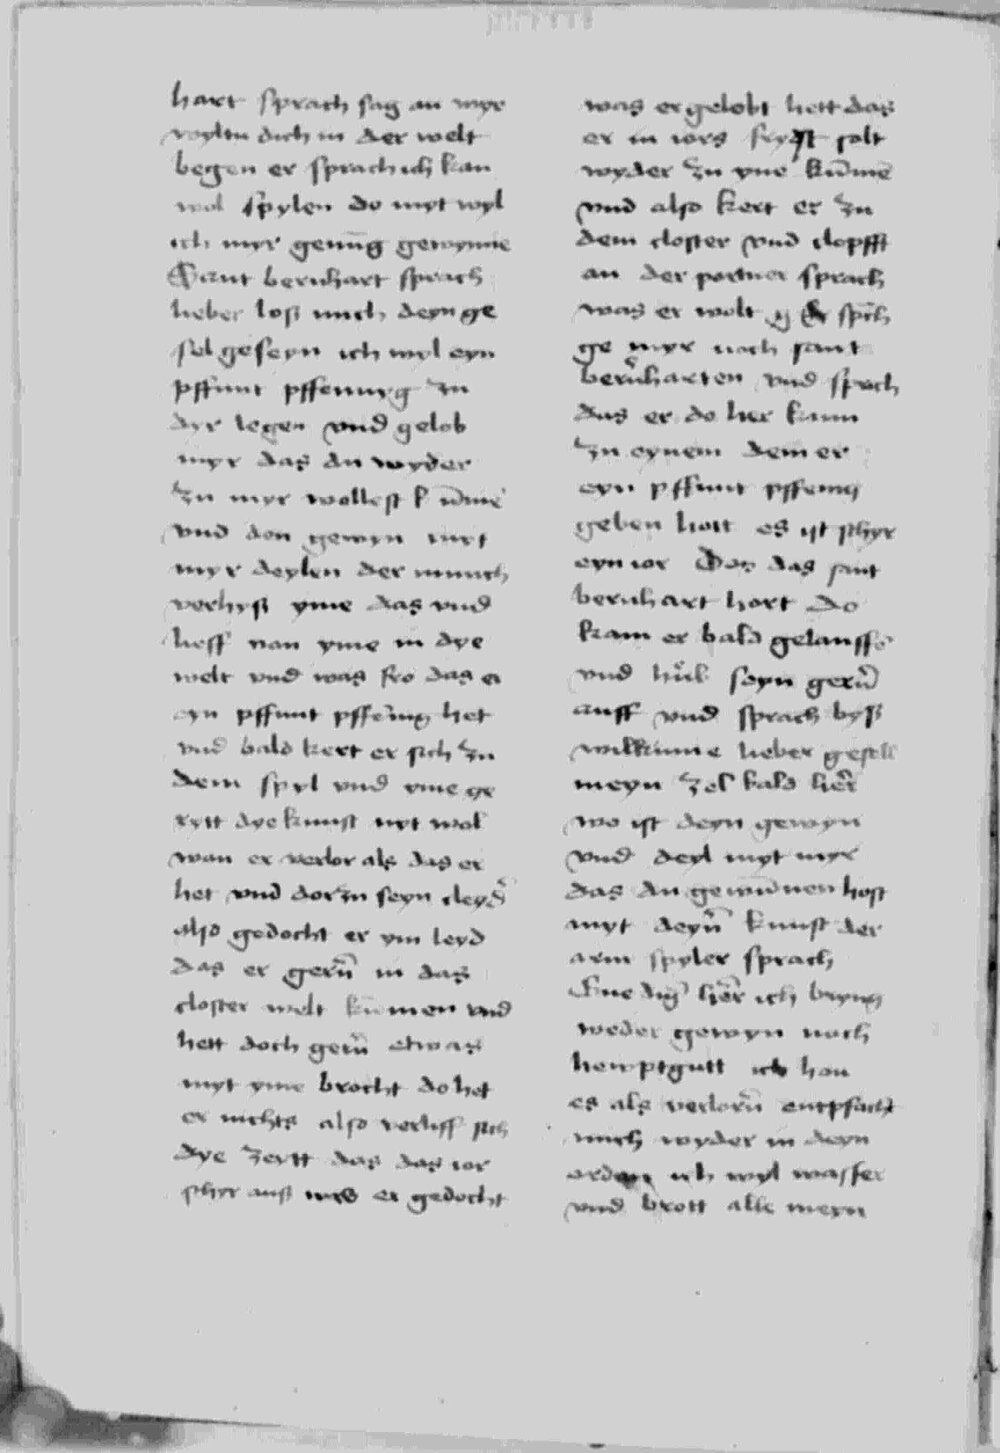 hart sprach sag an myr
wyltu dich in der welt
begen er sprach ich kan
wol spylen do myt wyl
ich myr genūg gewynne
Sant bernhart sprach
lieber loß mich deyn ge
sel geseyn ich wyl eyn
pffunt pffennyg zu
dyr legen vnd gelob
myr das du wyder
zu myr wollest kūme
vnd den gewyn myt
myr deylen der munch
verhyß yme das vnd
lieff von yme in dye
welt vnd was fro das er
eyn pffunt pffenīg het
vnd bald kert er sich zu
dem spyl vnd yme ge
rytt dye kunst nyt wol
wan er verlor als das er
het vnd dorzu seyn cleyd
also gedocht er ym leyd
das er gerñ in das
closter welt kūmen vnd
hett doch gerñ etwas
myt yme brocht do het
er nichts also verliff sich
dye zeytt das das ior
schyr auß was er gedocht
was er gelobt hett das
er in iors fryst solt
wyder zu yme kūmē
vnd also kert er zu
dem closter vnd clopfft
an der portner sprach
was er wolt Er sp̄ch
ge myr noch sant
bernharten vnd sprich
das er do her kum
zu eynem dem er
eyn pffunt pffenig
geben hott es ist schyr
eyn ior Do das sant
bernhart hort do
kam er bald gelauffē
vnd hub seyn gerñ
auff vnd sprach byß
willkume lieber gesell
meyn zel bald her
wo ist deyn gewyn
vnd deyl myt myr
das du gewūnen host
myt deyñ kunst der
arm spyler sprach
Gnedig her ich bryng
weder gewyn noch
hewptgutt ich han
es als verlorñ entpfacht
mich wyder in deyn
orden ich wyl wasser
vnd brott alle meyn